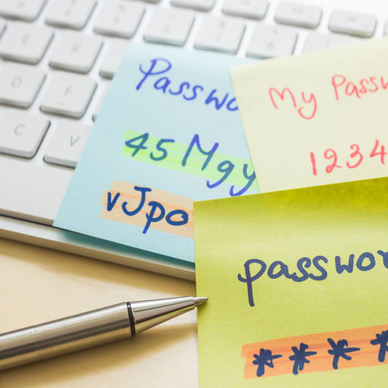 Passwo
45Mgy
vJpo
My Passw
1234
passwor
****
C
V
F